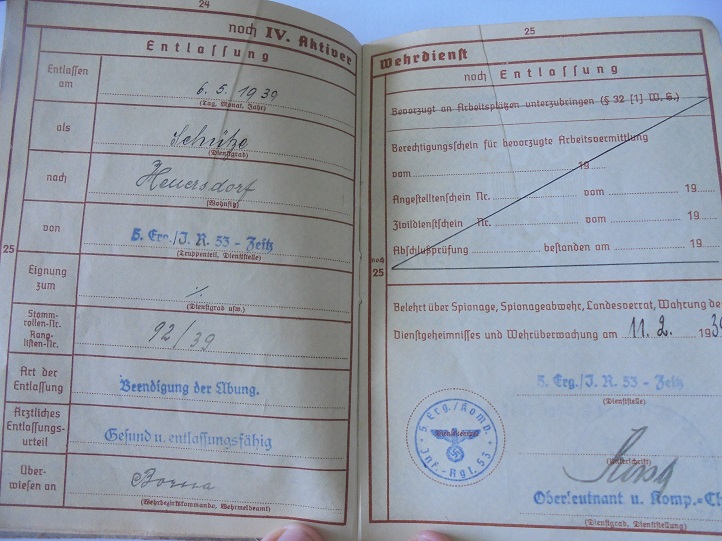 24
noch IV. Aktiver
Entlassung
Entlassen am
6. 5. 1939
(Tag, Monat, Jahr)
als
Schütze
(Dienstgrad)
nach
Heuersdorf
(Wohnsitz)
25
von
5. Erg./J. R. 53 - Zeitz
(Truppenteil, Dienststelle)
Eignung zum
(Dienstgrad usw.)
Stamm-
rollen-Nr.
Rang-
listen-Nr.
92/39
Art der
Entlassung
Beendigung der Übung.
Ärztliches
Entlassungs-
urteil
Gesund u. entlassungsfähig
Über-
wiesen an
Borna
(Wehrbezirkkommando, Wehrmeldeamt)
25
Wehrdienst
noch Entlassung
Bevorzugt an Arbeitsplätzen unterzubringen (§ 32 [1] W. G.)
Berechtigungsschein für bevorzugte Arbeitsvermittlung
vom 19
Angestelltenschein Nr. vom 19
Zivildienstschein Nr. vom 19
noch
25
Abschlußprüfung bestanden am 19
Belehrt über Spionage, Spionageabwehr, Landesverrat, Wahrung de
Dienstgeheimnisses und Wehrüberwachung am 11. 2. 1939
5. Erg./J. R. 53 - Zeitz
(Dienststelle)
5. Erg./Komp.
Inf.-Rgt. 53
(Unterschrift)
Oberleutnant u. Komp.-Ch
(Dienstgrad, Dienststellung)